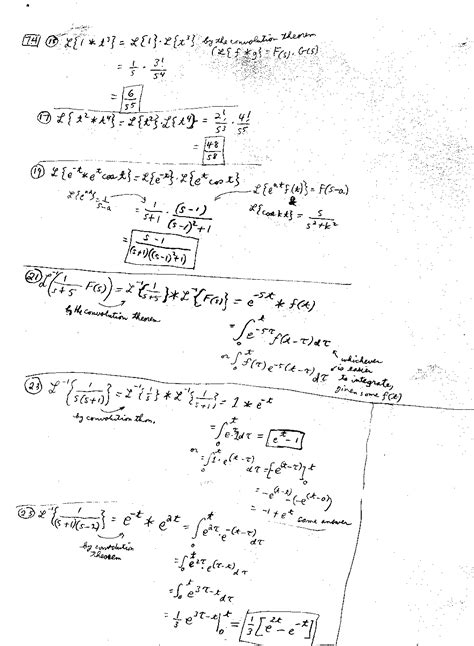 7.4 ℒ{1 * t³} = ℒ{1}·ℒ{t³} by the convolution theorem
(ℒ{f * g} = F(s)·G(s)
= 1/s · 3!/s⁴
= 6/s⁵
(17) ℒ{t² * t⁴} = ℒ{t²}·ℒ{t⁴} = 2!/s³ · 4!/s⁵
= 48/s⁸
(19) ℒ{e^-t * e^t cos t} = ℒ{e^-t}·ℒ{e^t cos t}
ℒ{e^at} = 1/(s-a)
= 1/(s+1) · (s-1)/((s-1)²+1)
ℒ{e^at f(t)} = F(s-a)
&
ℒ{cos kt} = s/(s²+k²)
= (s-1)/((s+1)((s-1)²+1))
(21) ℒ⁻¹{1/(s+5) F(s)} = ℒ⁻¹{1/(s+5)} * ℒ⁻¹{F(s)} = e^-5t * f(t)
by the convolution theorem
= ∫₀^t e^-5τ f(t-τ) dτ
or ∫₀^t f(τ) e^-5(t-τ) dτ
whichever
is easier
to integrate,
given some f(t)
(23) ℒ⁻¹{1/(s(s+1))} = ℒ⁻¹{1/s} * ℒ⁻¹{1/(s+1)} = 1 * e^-t
by convolution thm.
= e^t - 1
or
= -1 + e^t same answer
ℒ⁻¹{1/((s+1)(s-2))} = e^-t * e^2t = ∫₀^t e^2τ · e^-(t-τ) dτ
by convolution
theorem
= ∫₀^t e^2τ · e^(τ-t) dτ
= ∫₀^t e^(3τ-t) dτ
= 1/3 e^(3τ-t) |₀^t = 1/3 [e^2t - e^-t]